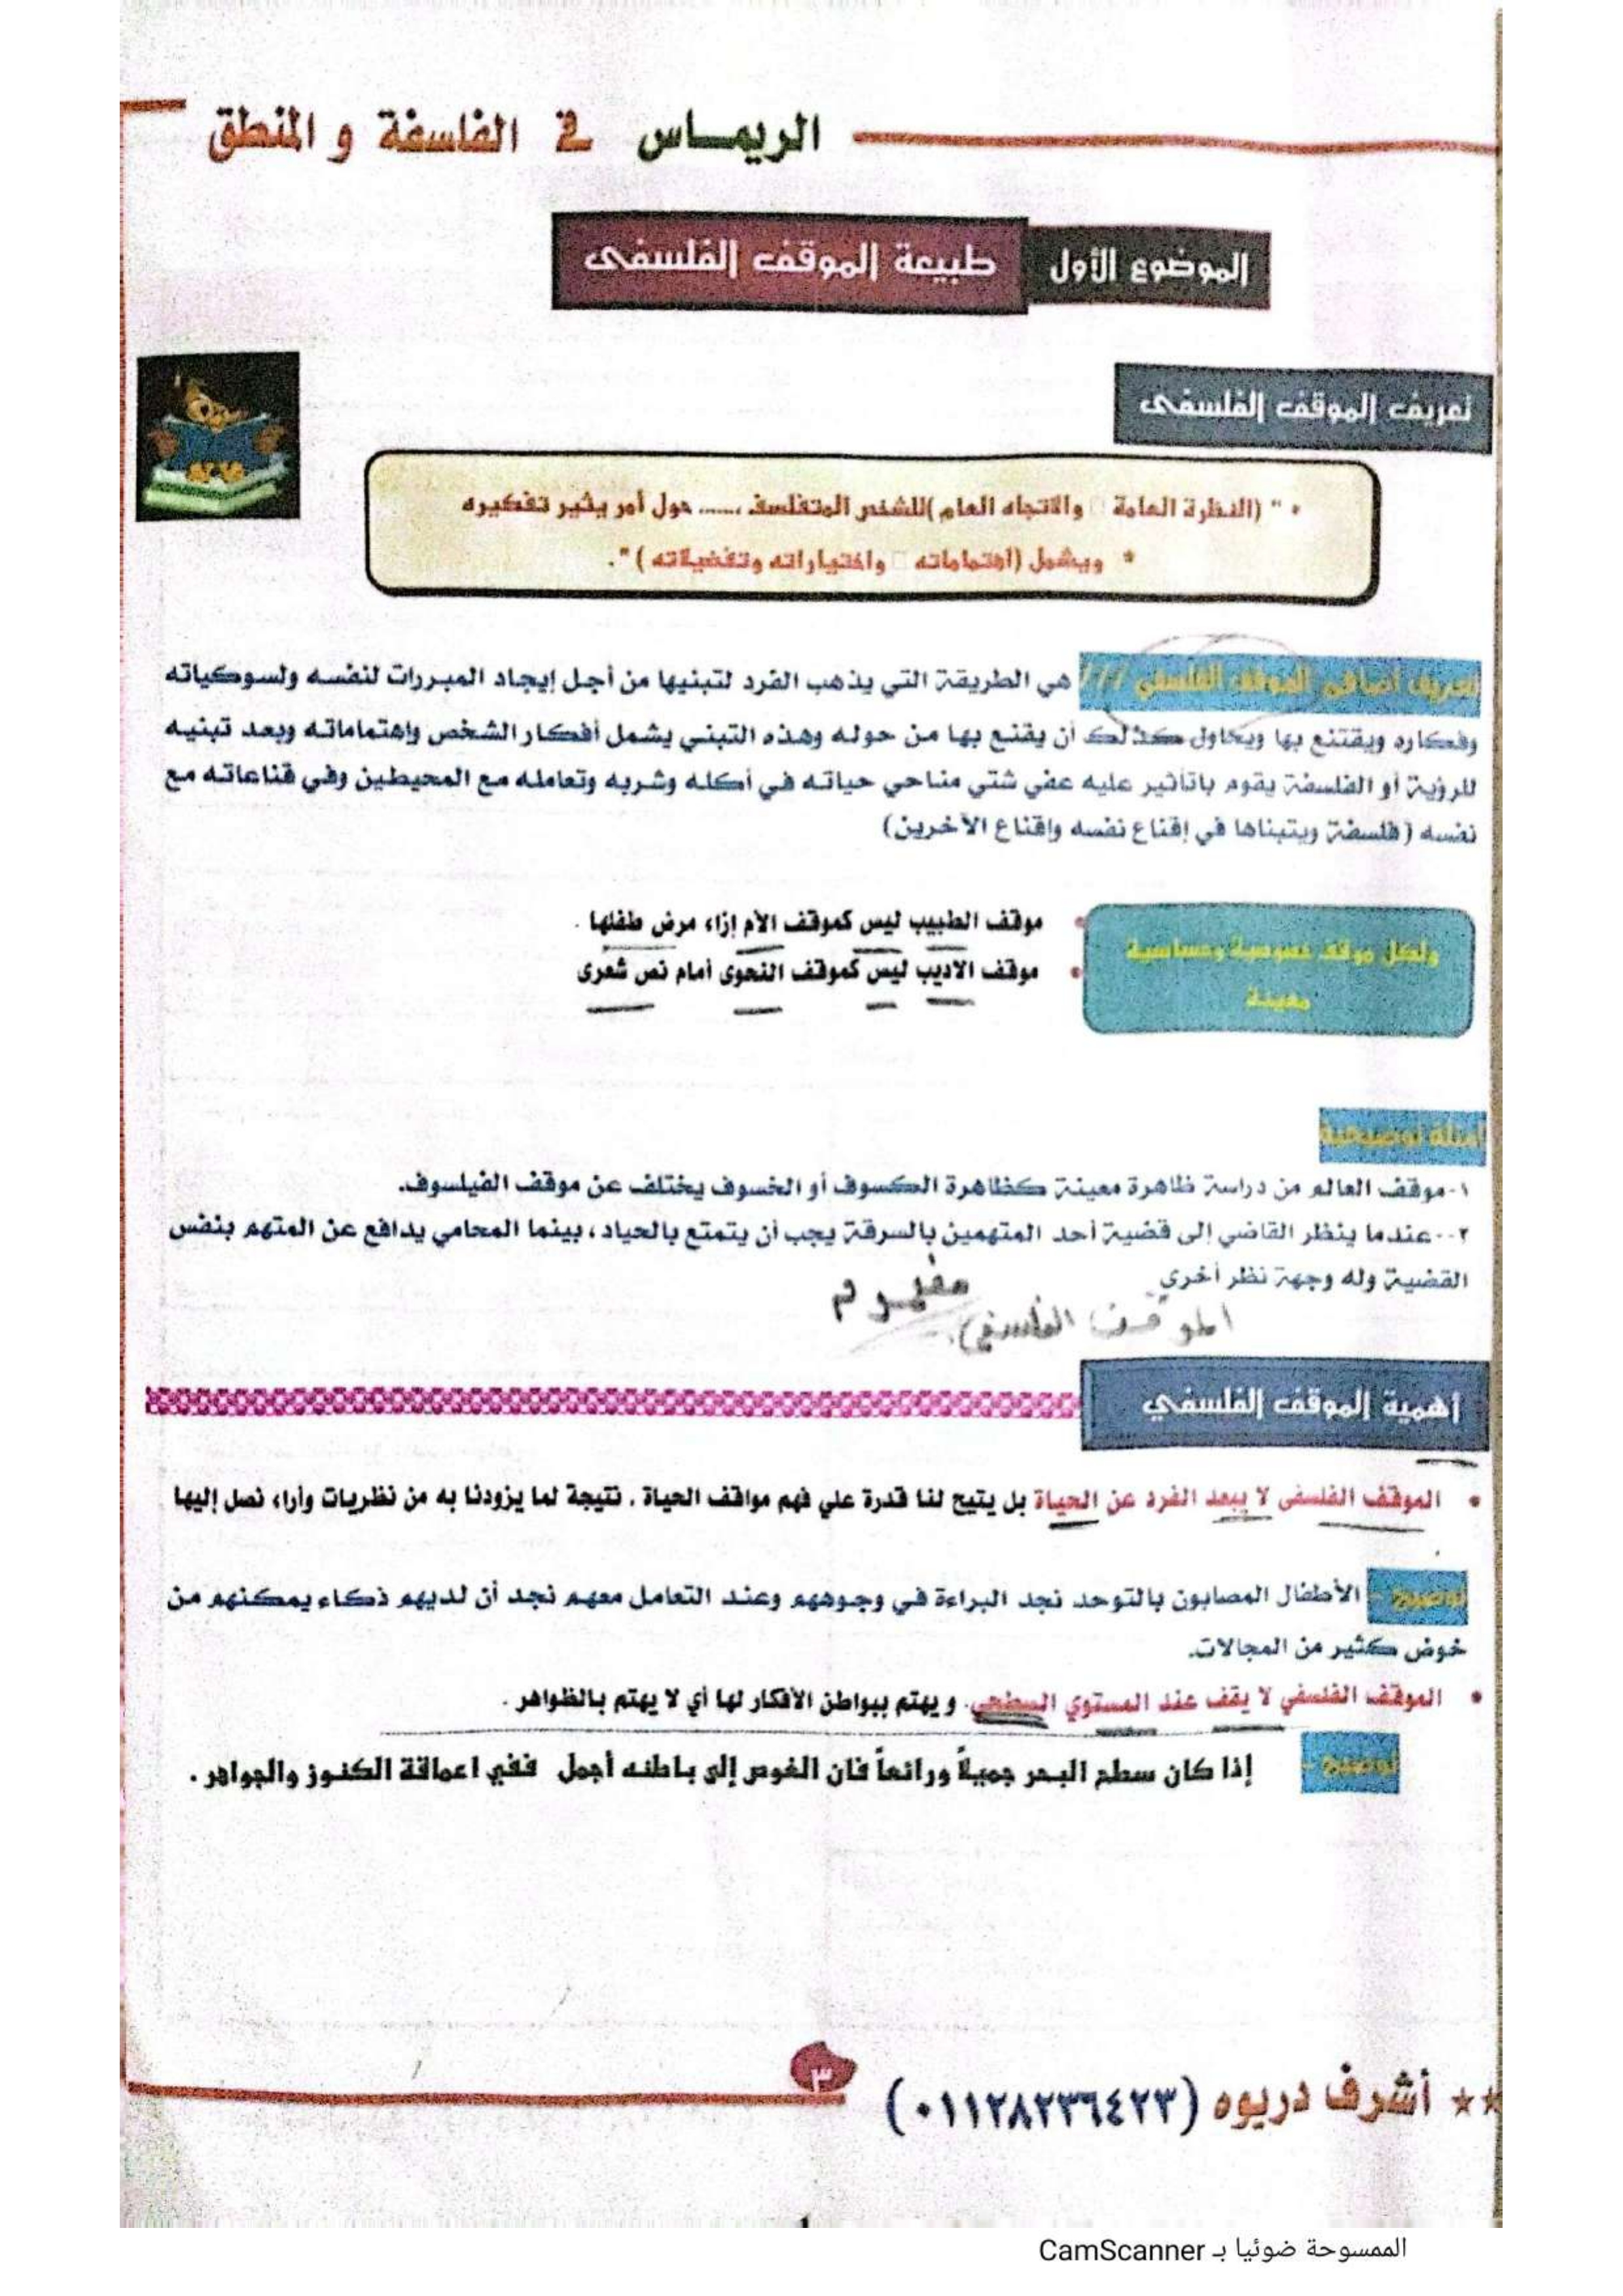 الريمــاس في الفلسفة و المنطق
الموضوع الأول طبيعة الموقف الفلسفى
تعريف الموقف الفلسفى
* " (النظرة العامة □ والاتجاه العام )للشخص المتفلسف ....... حول أمر يثير تفكيره
* ويشمل (اهتماماته □ واختياراته وتفضيلاته ) ".
تعريف أضافي الموقف الفلسفي /// هي الطريقة التي يذهب الفرد لتبنيها من أجل إيجاد المبررات لنفسه ولسوكياته
وفكاره ويقتنع بها ويحاول كذلك أن يقنع بها من حوله وهذه التبني يشمل أفكار الشخص واهتماماته وبعد تبنيه
للرؤية أو الفلسفة يقوم باتأثير عليه عفي شتي مناحي حياته في أكله وشربه وتعامله مع المحيطين وفي قناعاته مع
نفسه ( فلسفة ويتبناها في إقناع نفسه وإقناع الآخرين)
ولكل موقف خصوصية وحساسية
معينة
• موقف الطبيب ليس كموقف الأم إزاء مرض طفلها .
• موقف الاديب ليس كموقف النحوى أمام نص شعرى
أمثلة توضيحية
١-موقف العالم من دراسة ظاهرة معينة كظاهرة الكسوف أو الخسوف يختلف عن موقف الفيلسوف.
٢--عندما ينظر القاضي إلى قضية أحد المتهمين بالسرقة يجب أن يتمتع بالحياد ، بينما المحامي يدافع عن المتهم بنفس
القضية وله وجهة نظر أخري
مفهوم
الموقف الفلسفي.
أهمية الموقف الفلسفي
• الموقف الفلسفى لا يبعد الفرد عن الحياة بل يتيح لنا قدرة علي فهم مواقف الحياة . نتيجة لما يزودنا به من نظريات وأراء نصل إليها
توضيح - الأطفال المصابون بالتوحد نجد البراءة في وجوههم وعند التعامل معهم نجد أن لديهم ذكاء يمكنهم من
خوض كثير من المجالات.
• الموقف الفلسفي لا يقف عند المستوي السطحي. و يهتم ببواطن الأفكار لها أي لا يهتم بالظواهر .
توضيح - إذا كان سطح البحر جميلاً ورائعاً فان الغوص إلى باطنه أجمل ففي اعماقة الكنوز والجواهر .
٣
** أشرف دريوه (٠١١٢٨٢٣٦٤٢٣)
الممسوحة ضوئيا بـ CamScanner